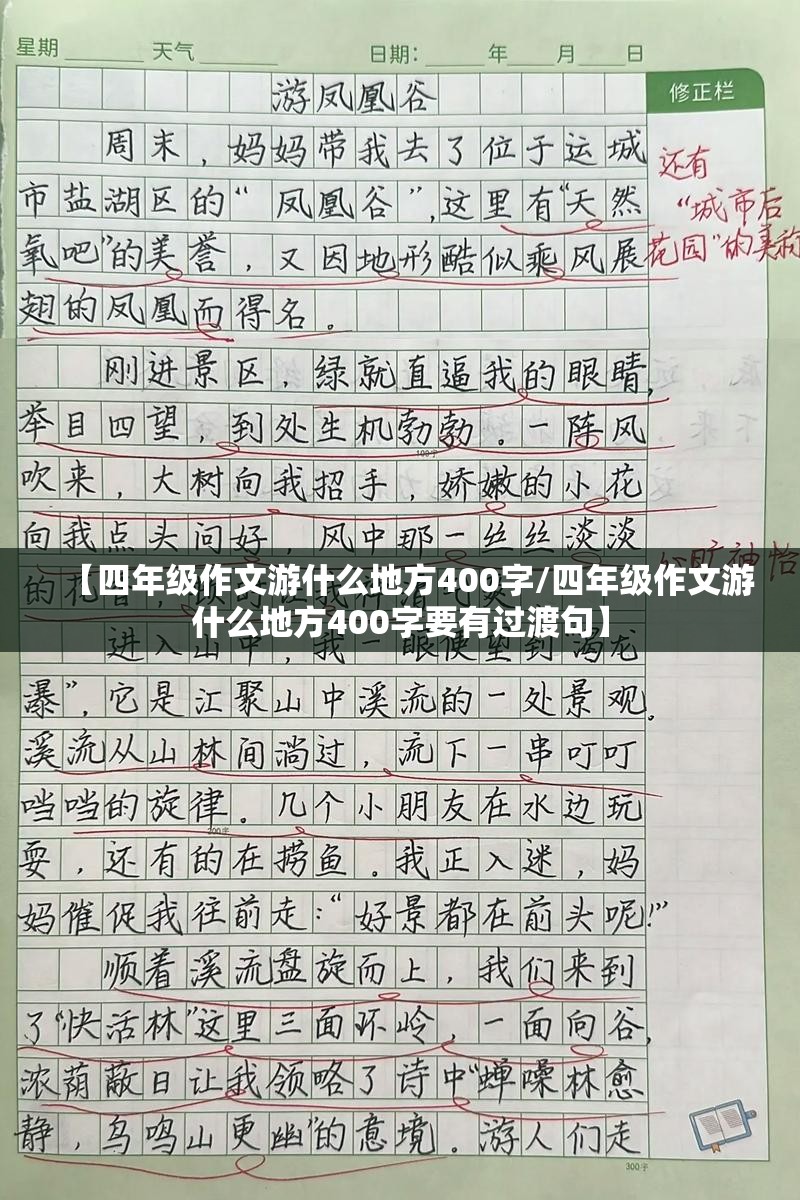 星期 天气 日期: 年 月 日
修正栏
游凤凰谷
周末，妈妈带我去了位于运城
市盐湖区的“凤凰谷”，这里有“天然
氧吧”的美誉，又因地形酷似乘风展
翅的凤凰而得名。
还有
“城市后
花园”的美称
刚进景区，绿就直逼我的眼睛，
举目四望，到处生机勃勃。一阵风
100字
吹来，大树向我招手，娇嫩的小花
向我点头问好，风中那一丝丝淡淡
心旷神怡
的花香，
【四年级作文游什么地方400字/四年级作文游
什么地方400字要有过渡句】
进入山中，我一眼便望到“涡龙
瀑”，它是汇聚山中溪流的一处景观。
溪流从山林间淌过，流下一串叮叮
当当的旋律。几个小朋友在水边玩
200字
耍，还有的在捞鱼。我正入迷，妈
妈催促我往前走：“好景都在前头呢！”
顺着溪流盘旋而上，我们来到
了“快活林”这里三面环岭，一面向谷，
浓荫蔽日让我领略了诗中“蝉噪林愈
静，鸟鸣山更幽”的意境。游人们走
300字